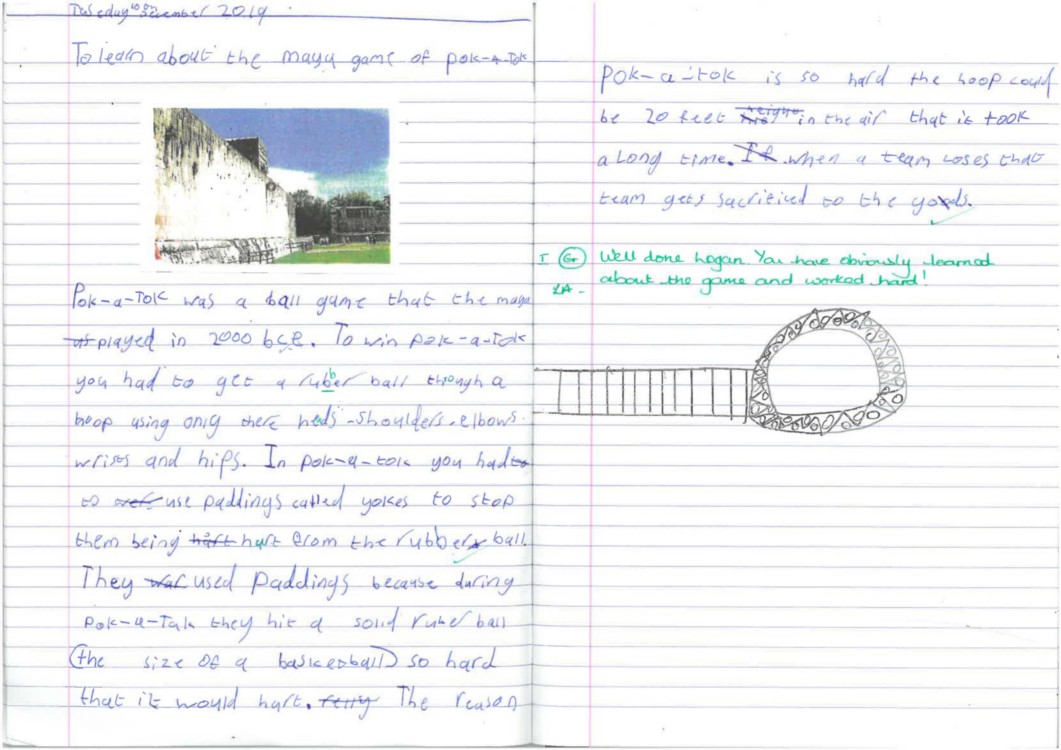 Tuesday 10th December 2019
To learn about the maya game of pok-a-Tok
Pok-a-Tok was a ball game that the maya
played in 2000 bce. To win pok-a-Tok
you had to get a rubber ball through a
hoop using only there heds-shoulders-elbows-
wrists and hips. In pok-a-tok you had to
to use paddings called yokes to stop
them being hart hurt from the rubber ball.
They war used paddings because during
Pok-a-Tak they hit a solid ruber ball
(the size of a basketball) so hard
that it would hurt. The reason
Pok-a-tok is so hard the hoop could
be 20 feet in the air that it took
a long time. If when a team loses that
team gets sacrificed to the gods.
I G Well done hogan. You have obviously learned
LA - about the game and worked hard!